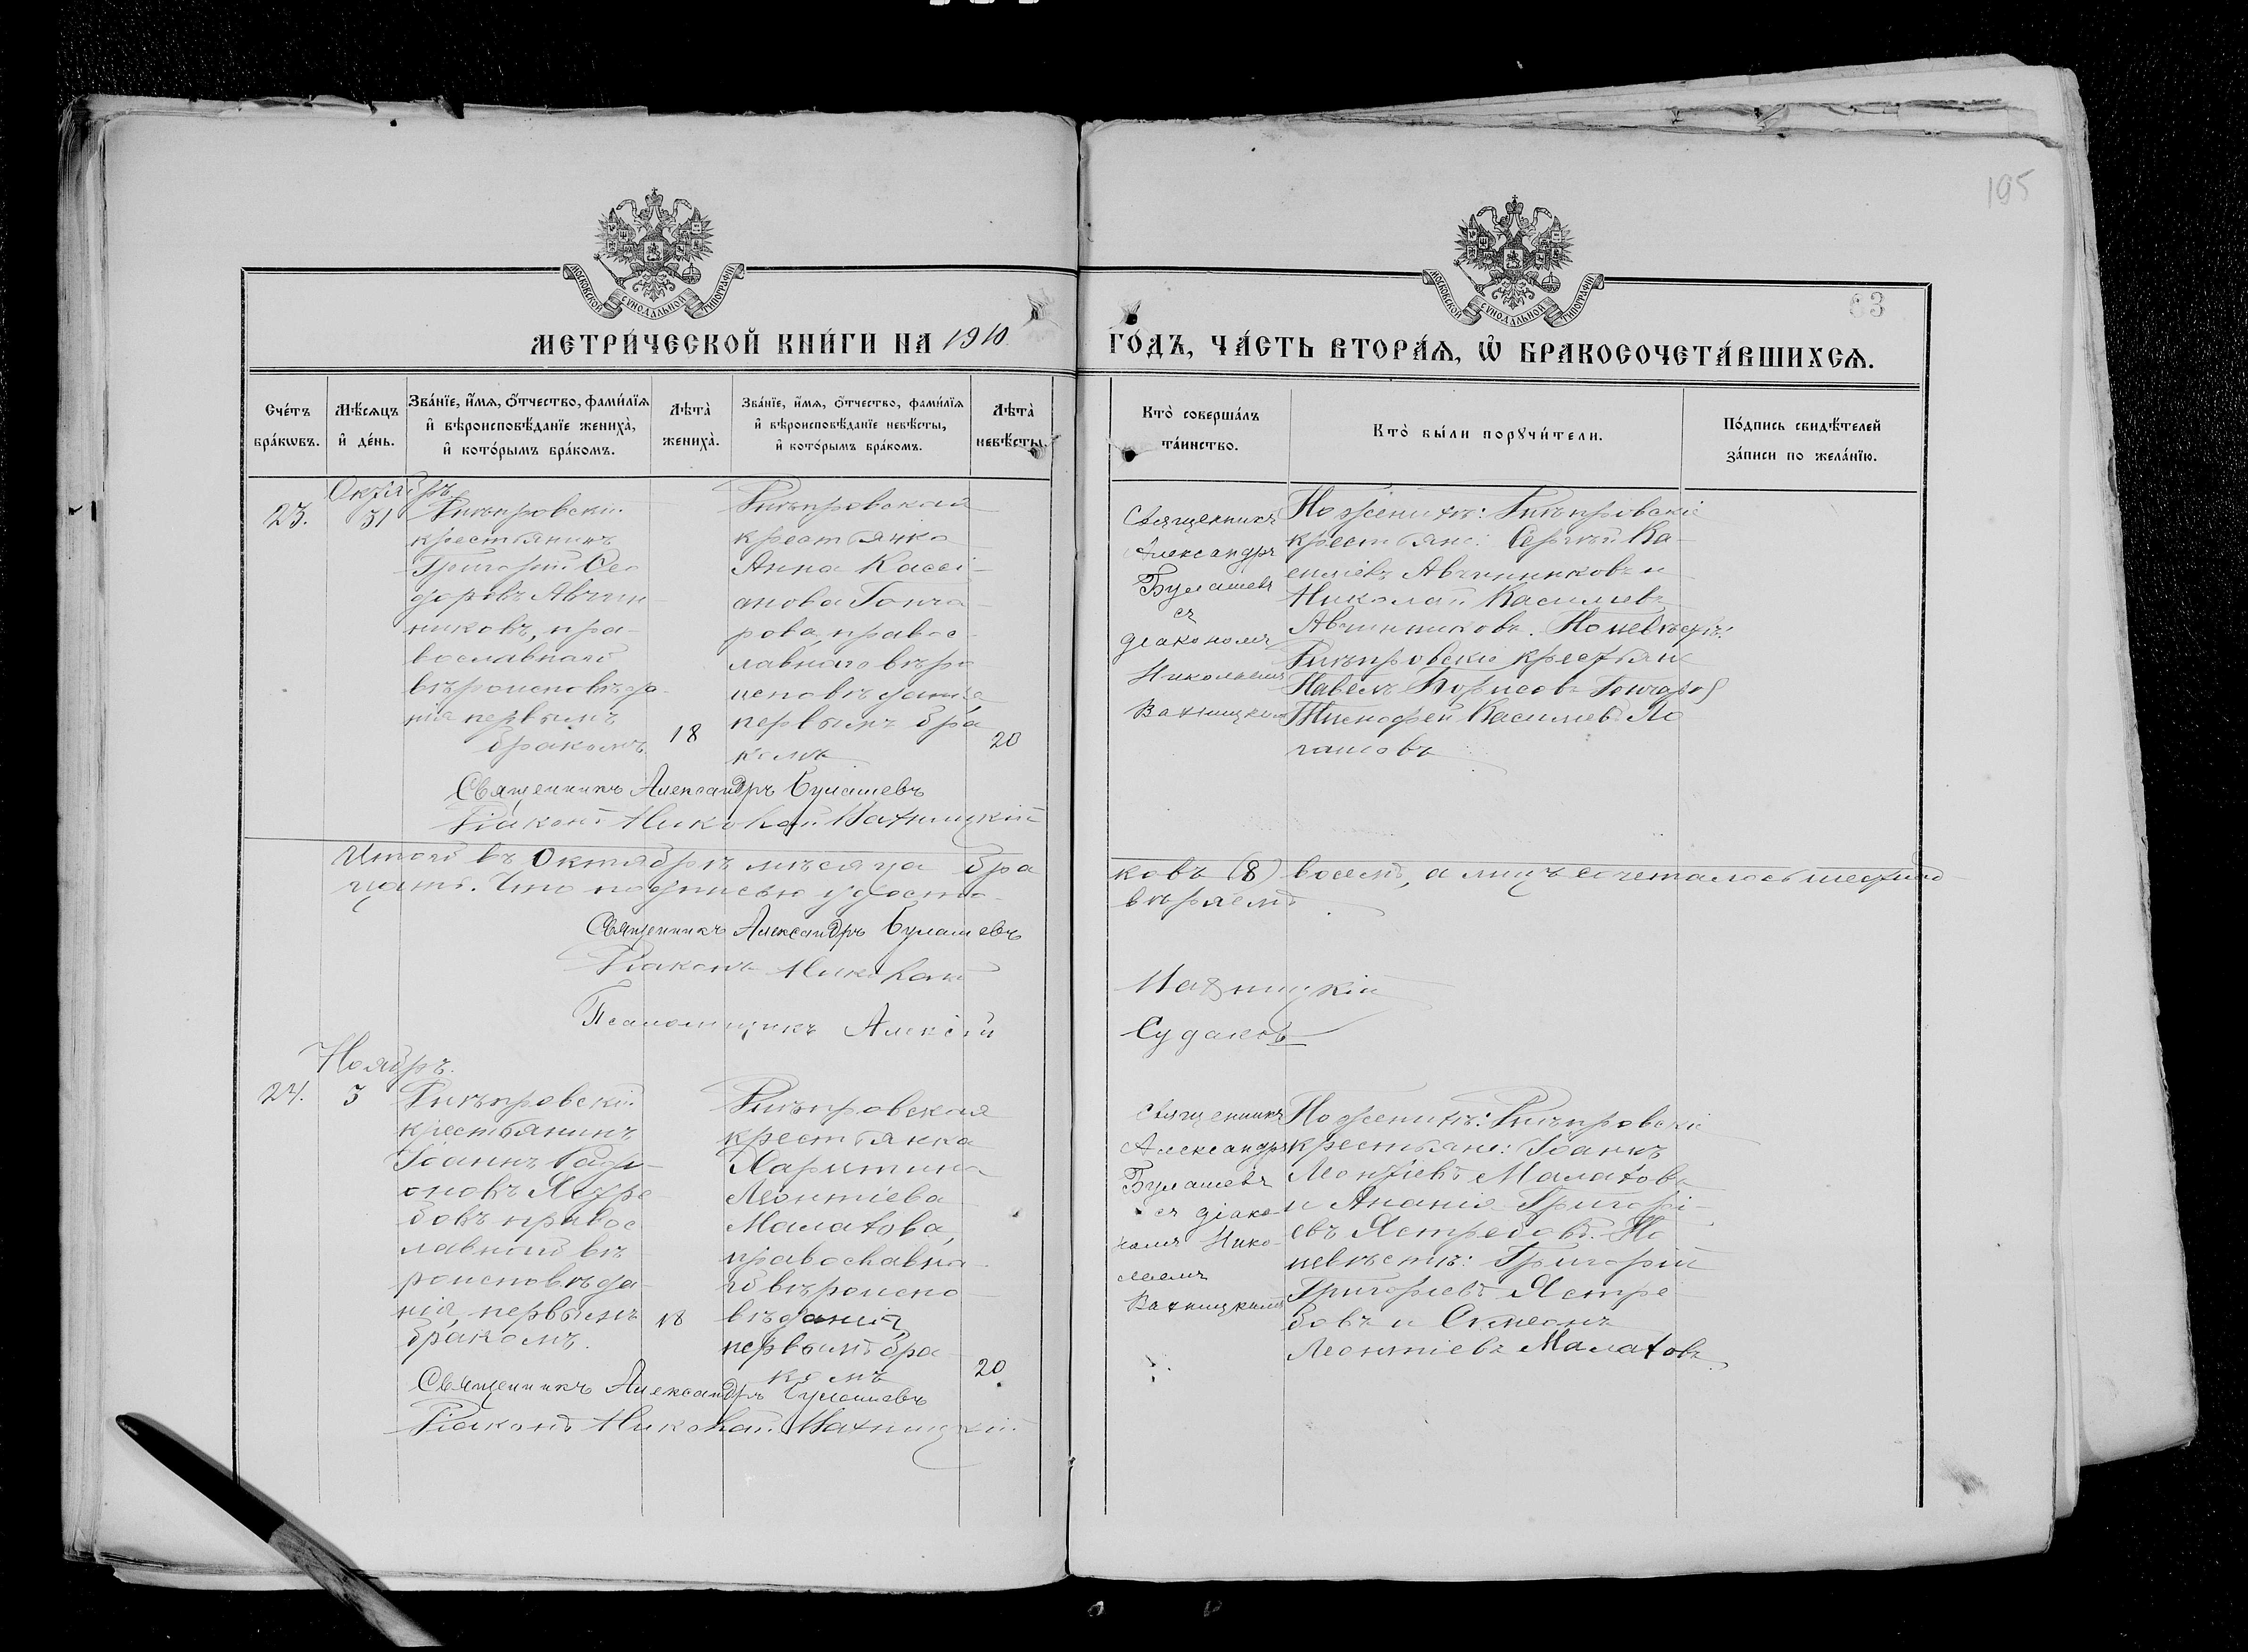 195
63
МОСКОВСКОЙ СѴНОДАЛЬНОЙ ТИПОГРАФІИ
МОСКОВСКОЙ СѴНОДАЛЬНОЙ ТИПОГРАФІИ
МЕТРИ́ЧЕСКОЙ КНИ́ГИ НА 1910
ГО́ДЪ, ЧА́СТЬ ВТОРА́Ѧ, Ѡ҆ БРАКОСОЧЕТА́ВШИХСѦ.
Сче́тъ бра́кѡвъ.
Мѣ́сѧцъ и҆ де́нь.
Зва́нїе, и҆́мѧ, ѻ҆́тчество, фами́лїѧ
и҆ вѣроисповѣ́данїе жениха̀,
и҆ кото́рымъ бра́комъ.
Лѣта̀ жениха̀.
Зва́нїе, и҆́мѧ, ѻ҆́тчество, фами́лїѧ
и҆ вѣроисповѣ́данїе невѣ́сты,
и҆ кото́рымъ бра́комъ.
Лѣта̀ невѣ́сты.
Кто̀ соверша́лъ
та́инство.
Кто̀ бы́ли порꙋчи́тели.
По́дпись свидѣ́телей
за́писи по жела́нїю.
Октябрь
23.
31
крестьянинъ
Григорій Ѳео
доровъ Авчин-
никовъ, пра-
вославнаго
вѣроисповѣда-
нія первымъ
бракомъ.
18
крестьянка
Анна Кассі-
анова Гонча-
рова, правос-
лавнаго вѣро
исповѣданія
первымъ бра
комъ
20
Священникъ
Александръ
Булашевъ
съ
діакономъ
Николаемъ
Вахницкимъ
По женихѣ:
крестьяне: Сергѣй Ва-
силіевъ Авчинниковъ и
Николай Василіевъ
Авчинниковъ. По невѣстѣ:
крестьяне
Павелъ Борисовъ Гончаровъ
Тимофей Василіевъ Ло
гашовъ
Священникъ Александръ Булашевъ
Діаконъ Николай Вахницкій
Итого въ Октябрѣ мѣсяца бра
ковъ (8) восемь, а лицъ сочеталось шестнад
цать. Что подписью удосто-
вѣряемъ
Священникъ Александръ Булашевъ
Діаконъ Николай
Вахницкій
Псаломщикъ Алексій
Судаковъ
Ноябрь.
24.
3
крестьянинъ
Іоаннъ
Ястре
бовъ правос
лавнаго вѣ-
роисповѣда-
нія, первымъ
бракомъ.
18
крестьянка
Харитина
Леонтіева
Малахова,
православна-
го вѣроиспо-
вѣданія,
первымъ бра-
комъ
20
Священникъ
Александръ
Булашевъ
съ діако-
номъ Нико-
лаемъ
Вахницкимъ
По женихѣ:
крестьяне: Іоаннъ
Леонтіевъ Малаховъ
и Ананія Григорі-
евъ Ястребовъ. По
невѣстѣ: Григорій
Григоріевъ Ястре-
бовъ и Симеонъ
Леонтіевъ Малаховъ
Священникъ Александръ Булашевъ
Діаконъ Николай Вахницкій.